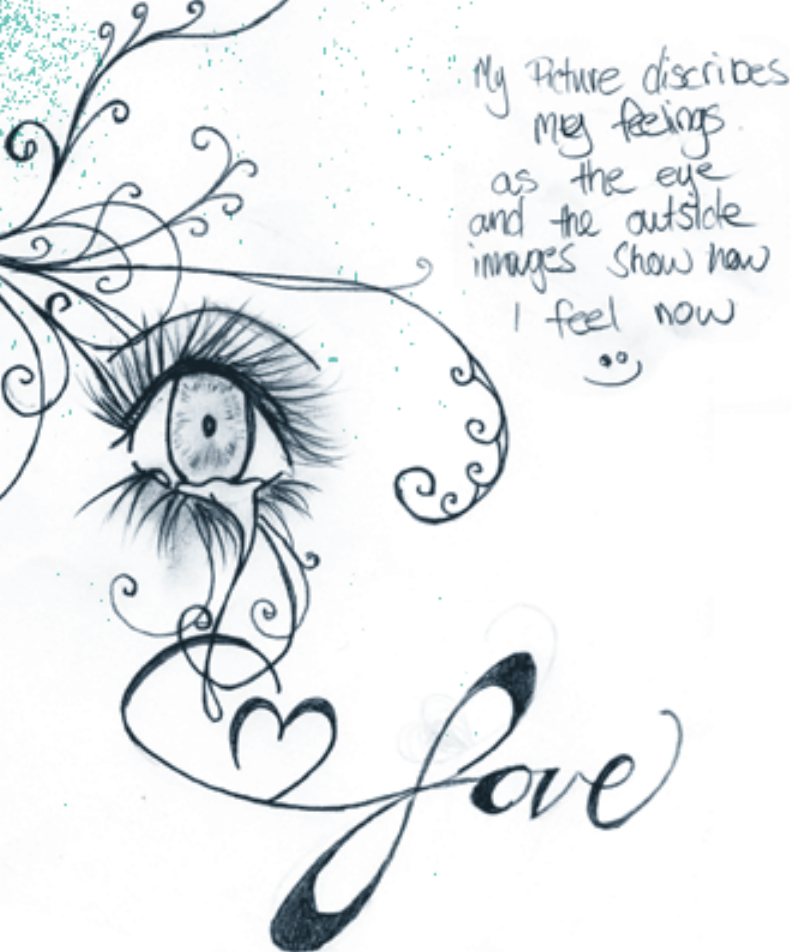 My Picture discribes
my feelings
as the eye
and the outside
images show how
I feel now
Love